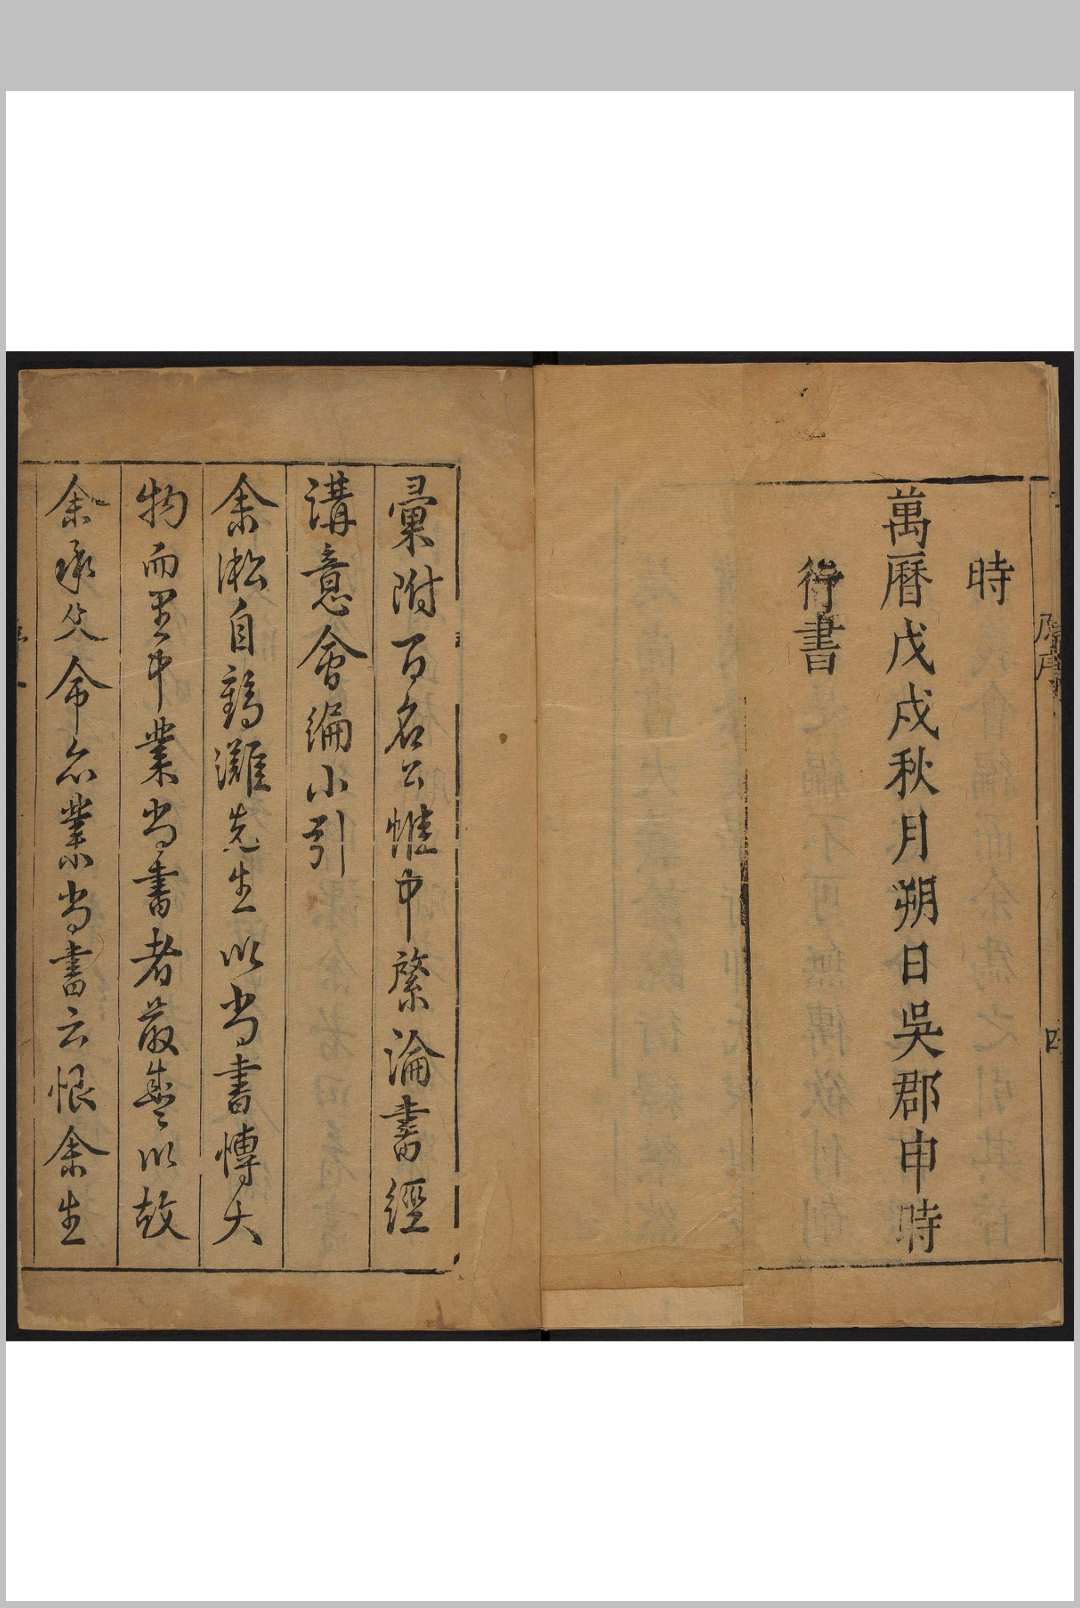 時
萬曆戊戌秋月朔日吳郡申時
行書
彙附百名公帷中棨論書經
講意會編小引
余淞自鶴灘先生以尚書博大
物而里中業尚書者最盛以故
余承父命亦業尚書云恨余生